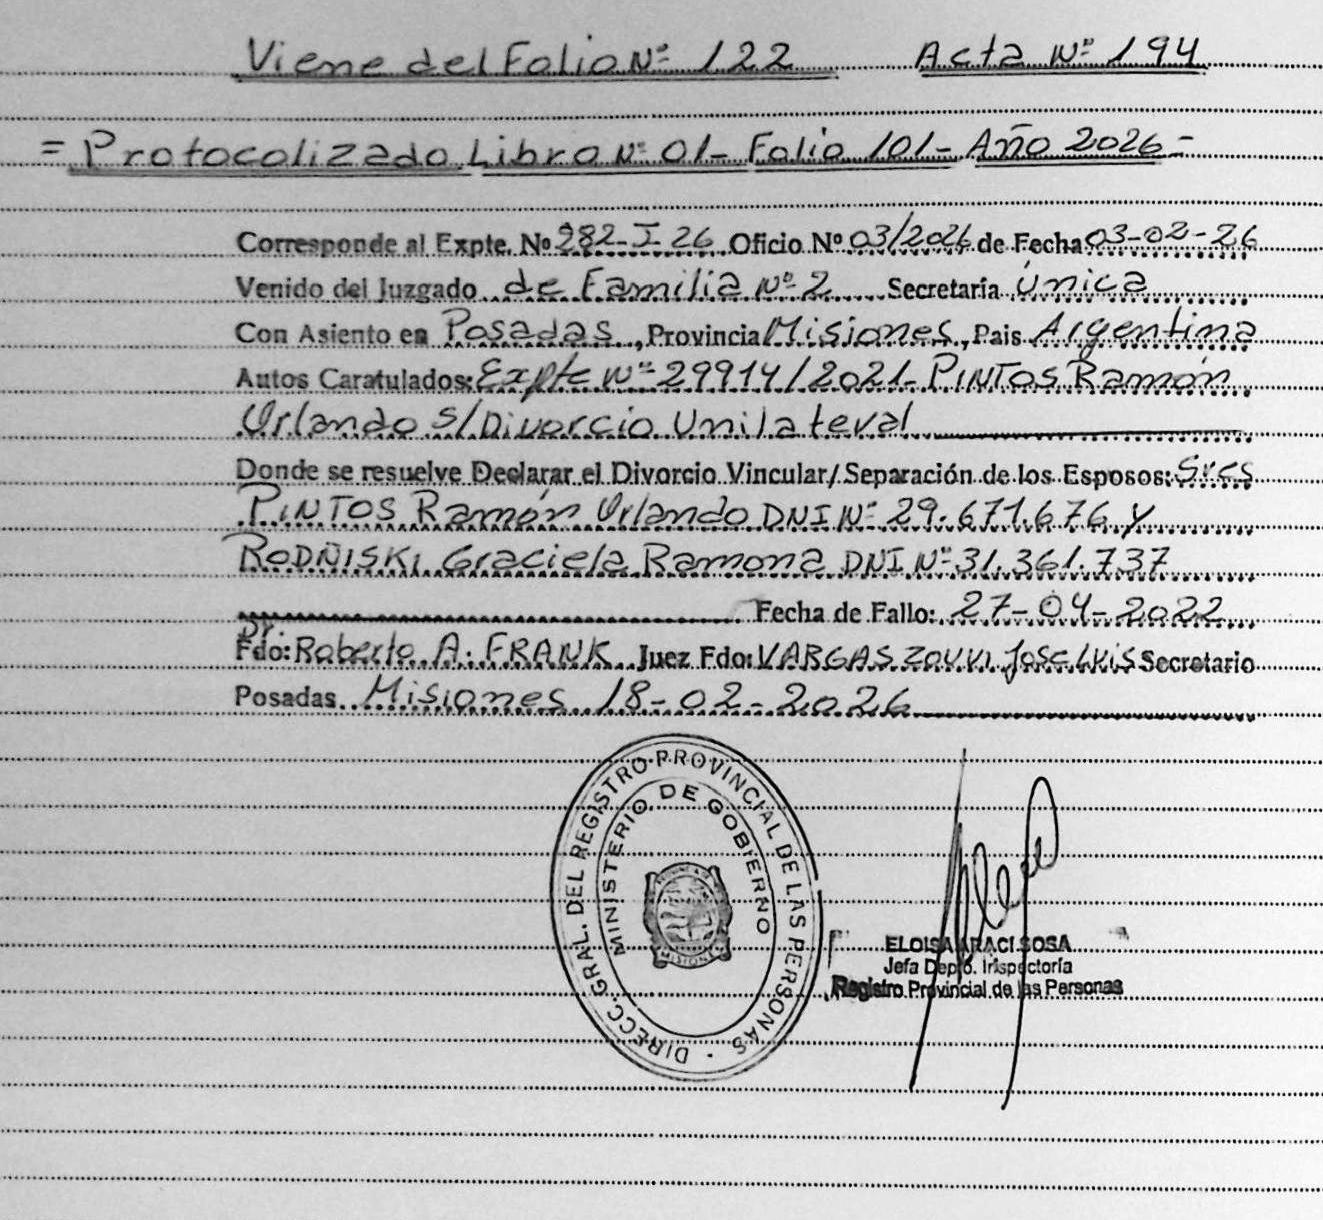 Viene del Folio Nº 122 Acta Nº 194
= Protocolizado Libro Nº 01- Folio 101- Año 2026 =
Corresponde al Expte. Nº 282-I-26 Oficio Nº 03/2026 de Fecha 03-02-26
Venido del Juzgado de Familia Nº 2 Secretaría Única
Con Asiento en Posadas, Provincia Misiones, Pais Argentina
Autos Caratulados: Expte Nº 29914/2021- PINTOS Ramón
Orlando s/Divorcio Unilateral
Donde se resuelve Declarar el Divorcio Vincular/ Separación de los Esposos: Sres
PINTOS Ramón Orlando DNI Nº 29.671.676 y
RODÑISKI Graciela Ramona DNI Nº 31.361.737
Fecha de Fallo: 27-04-2022
Dr.
Fdo: Roberto A. FRANK Juez Fdo: VARGAS José Luis Secretario
Posadas Misiones 18-02-2026
DIRECC. GRAL. DEL REGISTRO PROVINCIAL DE LAS PERSONAS
MINISTERIO DE GOBIERNO
MISIONES
ELOISA ARACI SOSA
Jefa Depto. Inspectoría
Registro Provincial de las Personas